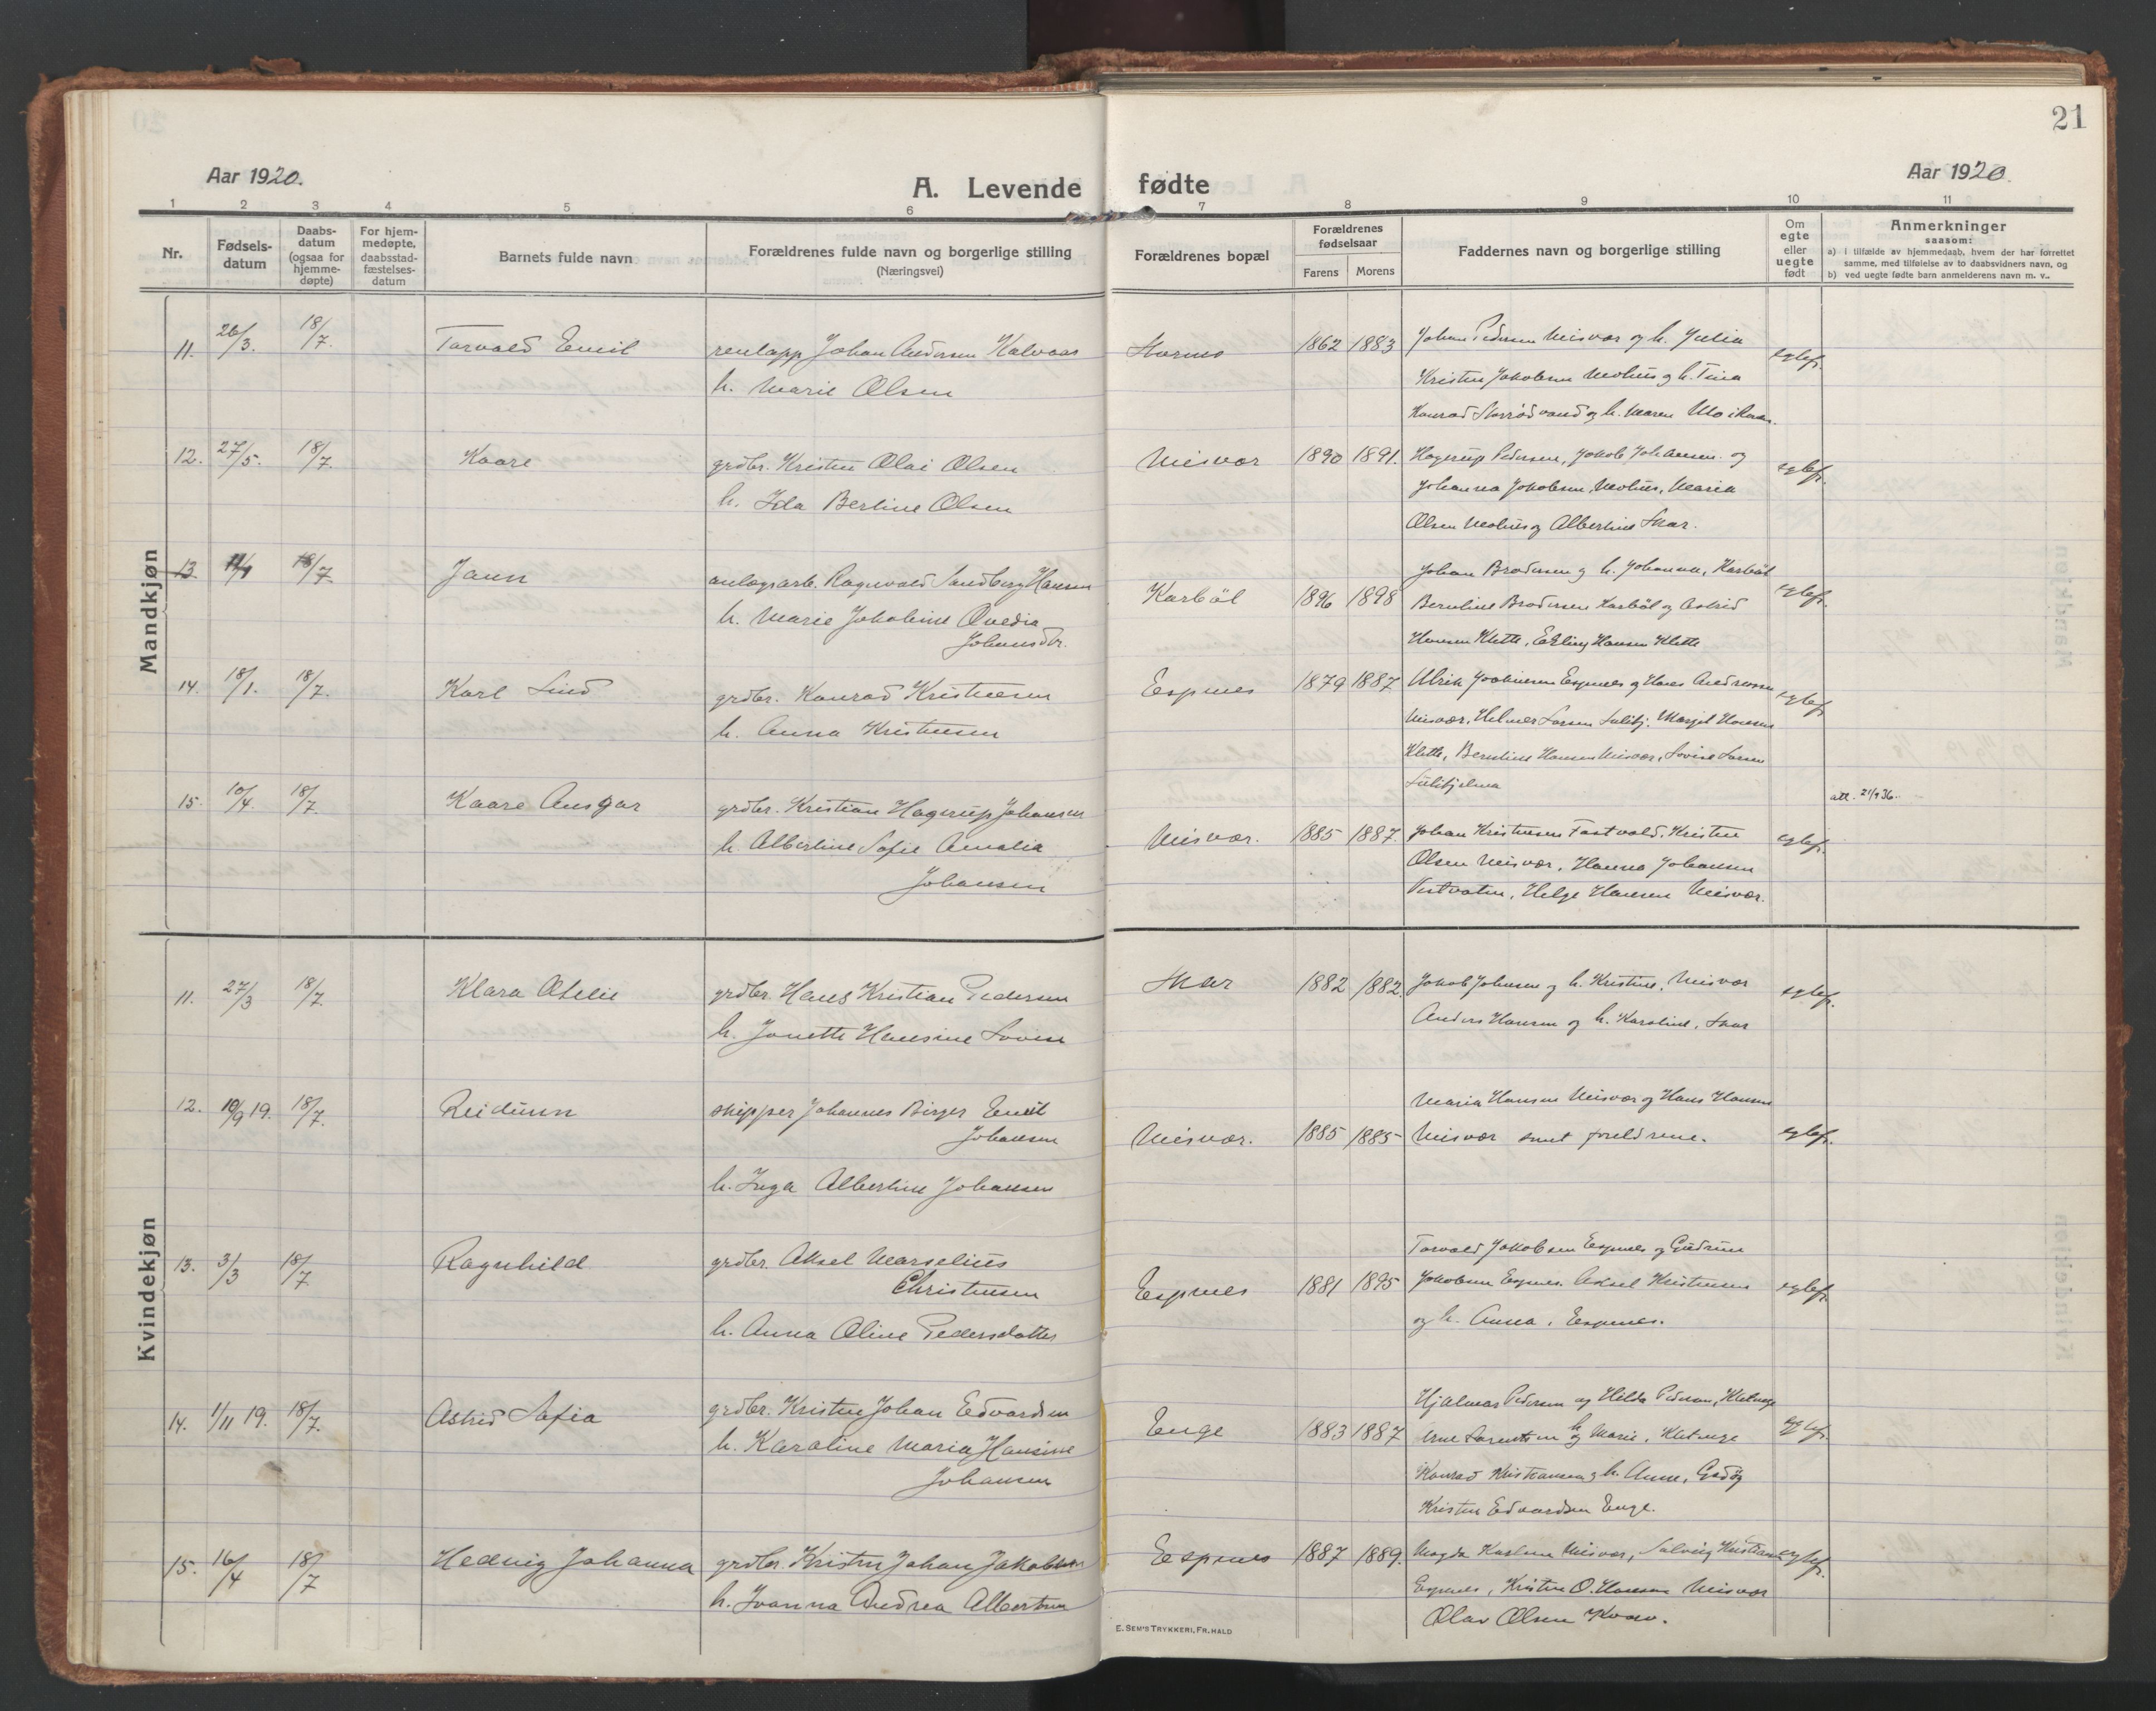 21
Aar 1920.
A. Levende fødte
Aar 1920.
1 2 3 4 5 6 7 8 9 10 11
Nr.
Fødselsdatum
Daabsdatum (ogsaa for hjemmedøpte)
For hjemmedøpte, daabsstadfæstelsesdatum
Barnets fulde navn
Forældrenes fulde navn og borgerlige stilling
(Næringsvei)
Forældrenes bopæl
Forældrenes fødselsaar
Farens Morens
Faddernes navn og borgerlige stilling
Om egte eller uegte født
Anmerkninger
saasom:
a) i tilfælde av hjemmedaab, hvem der har forrettet samme, med tilføielse av to daabsvidners navn, og
b) ved uegte fødte barn anmelderens navn m. v..
Mandkjøn
11. 26/3. 18/7. Torvald Emil renlapp Johan Andersen Kalvaas 1862 1883 Johan Pedersen Misvær og h. Julia egtef.
h. Marie Olsen Kristen Jakobsen Mohus og h. Tina
Konrad og h. Maren Mo i Rana.
12. 27/5. 18/7. Kaare grdbr. Kristen Olai Olsen Misvær 1890 1891. Hagerup Pedersen, Jakob Johansen og egtef.
h. Ida Berline Olsen Johanna Jakobsen, Mohus, Maria
Olsen Mohus og Albertine Skar.
13 11/4 18/7 Jann anlægsarb. Ragnvald Sandberg Hansen Karbøl 1896 1898 Johan Brodersen og h. Johanna, Karbøl egtef.
h. Marie Jakobine Ovedia Berntine Brodersen Karbøl og Astrid
Johansdtr. Hansen Klette, Erling Hansen Klette
14. 18/1. 18/7. Karl Lind grdbr. Konrad Kristensen Espnes 1879 1887 Ulrik Joakimsen Espenes og Hans Andreassen egtef.
h. Anna Kristensen Misvær, Helmer Larsen Sulitj. Margit Hansen
Klette, Berntine Hansen Misvær, Lovise Larsen
Sulitjelma
15. 10/4. 18/7. Kaare Ansgar grdbr. Kristian Hagerup Johansen Misvær. 1885 1887. Johan Kristensen Tostvold, Kristen egtef. att. 21/9 36.
h. Albertine Sofie Amalia Olsen Misvær, Hanna Johansen
Johansen Vestvatn, Helge Hansen Misvær.
Kvindekjøn
11. 27/3 18/7. Klara Otelie grdbr. Hans Kristian Pedersen Skar 1882 1882. Jakob Johnsen og h. Kristine, Misvær egtef.
h. Jonette Hansine Lovise Anders Hansen og h. Karoline, Skar
12. 10/9 19. 18/7. Reidunn skipper Johannes Birger Emil Misvær. 1885 1885 Maria Hansen Misvær og Hans Hansen egtef.
Johansen Misvær samt foreldrene.
h. Inga Albertine Johansen
13. 3/3 18/7 Ragnhild grdbr. Aksel Marselius Espnes 1881 1895 Torvald Jakobsen Espnes og Gudrun egtef.
Christensen Jakobsen Espnes. Aksel Kristensen
h. Anna Oline Pedersdatter og h. Anna, Espnes.
14. 1/11 19. 18/7. Astrid Sofia grdbr. Kristen Johan Edvardsen Enge 1883 1887 Hjalmar Pedersen og Hilda Pedersen, egtef.
h. Karoline Maria Hansine Arne Larentsen og h. Marie,
Johansen Konrad Kristiansen og h. Anna,
Kristen Edvardsen Enge.
15. 16/4 18/7 Hedvig Johanna grdbr. Kristen Johan Jakobsen Espnes 1887 1889. Magda Karlsen Misvær, Solveig Kristiansen egtef.
h. Ivanna Andrea Albertine Espnes, Kristen O. Hansen Misvær
Olav Olsen
E. SEM'S TRYKKERI, FR.HALD